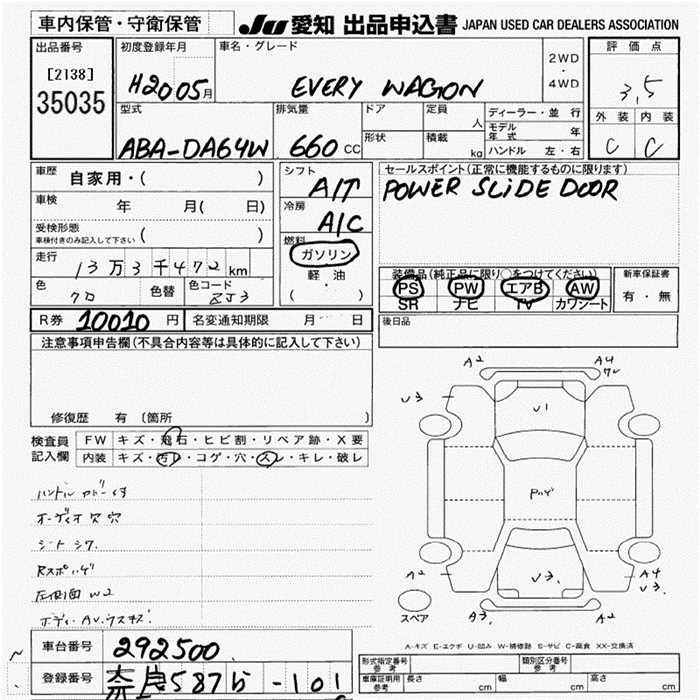 車内保管・守衛保管
JU 愛知 出品申込書 JAPAN USED CAR DEALERS ASSOCIATION
出品番号
[2138]
35035
初度登録年月
H2005月
車名・グレード
EVERY WAGON
2WD
・
4WD
評価点
3,5
外装 内装
C C
型式
ABA-DA64W
排気量
660 CC
ドア
形状
定員
人
積載
kg
ディーラー・並行
モデル年式 年
ハンドル 左・右
車歴
自家用・( )
車検
年 月( 日)
受検形態
車検付きのみ記入して下さい ( )
走行
13万3千472km
色
クロ
色替
色コード
ZJ3
シフト
A/T
冷房
A/C
燃料
ガソリン
軽油
( )
セールスポイント(正常に機能するものに限ります)
POWER SLIDE DOOR
装備品(純正品に限り○をつけてください)
PS PW エアB AW
SR ナビ TV カワシート
新車保証書
有・無
R券 10010 円
名変通知期限 月 日
後日品
注意事項申告欄(不具合内容等は具体的に記入して下さい)
修復歴 有 (箇所
検査員
記入欄
FW キズ・飛石・ヒビ割・リペア跡・X要
内装 キズ・汚レ・コゲ・穴・スレ・キレ・破レ
ハンドルカバー付
オーディオ穴
シートシワ
左側面 W2
A2
A4
U3
U1
A2
A3
U3
A2
A4
U3
スペア
A-キズ E-エクボ U-凹み W-補修跡 S-サビ C-腐食 XX-交換済
車台番号
292500
登録番号
奈良587 -101
形式指定番号
参考
類別区分番号
参考
車庫証明用
参考
長さ cm
幅 cm
高さ cm